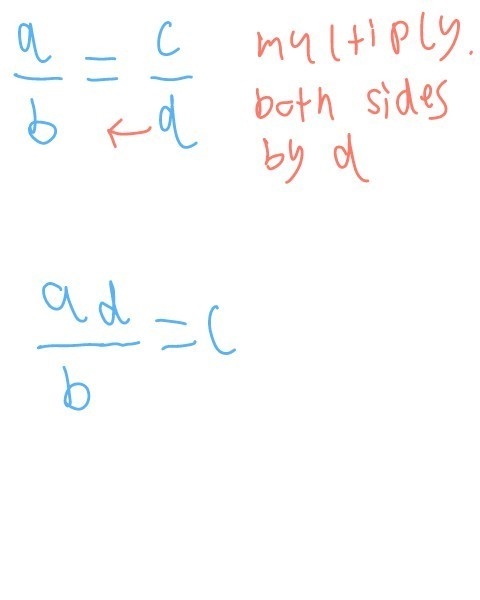 a/b = c/d
multiply.
both sides
by d
ad/b = c